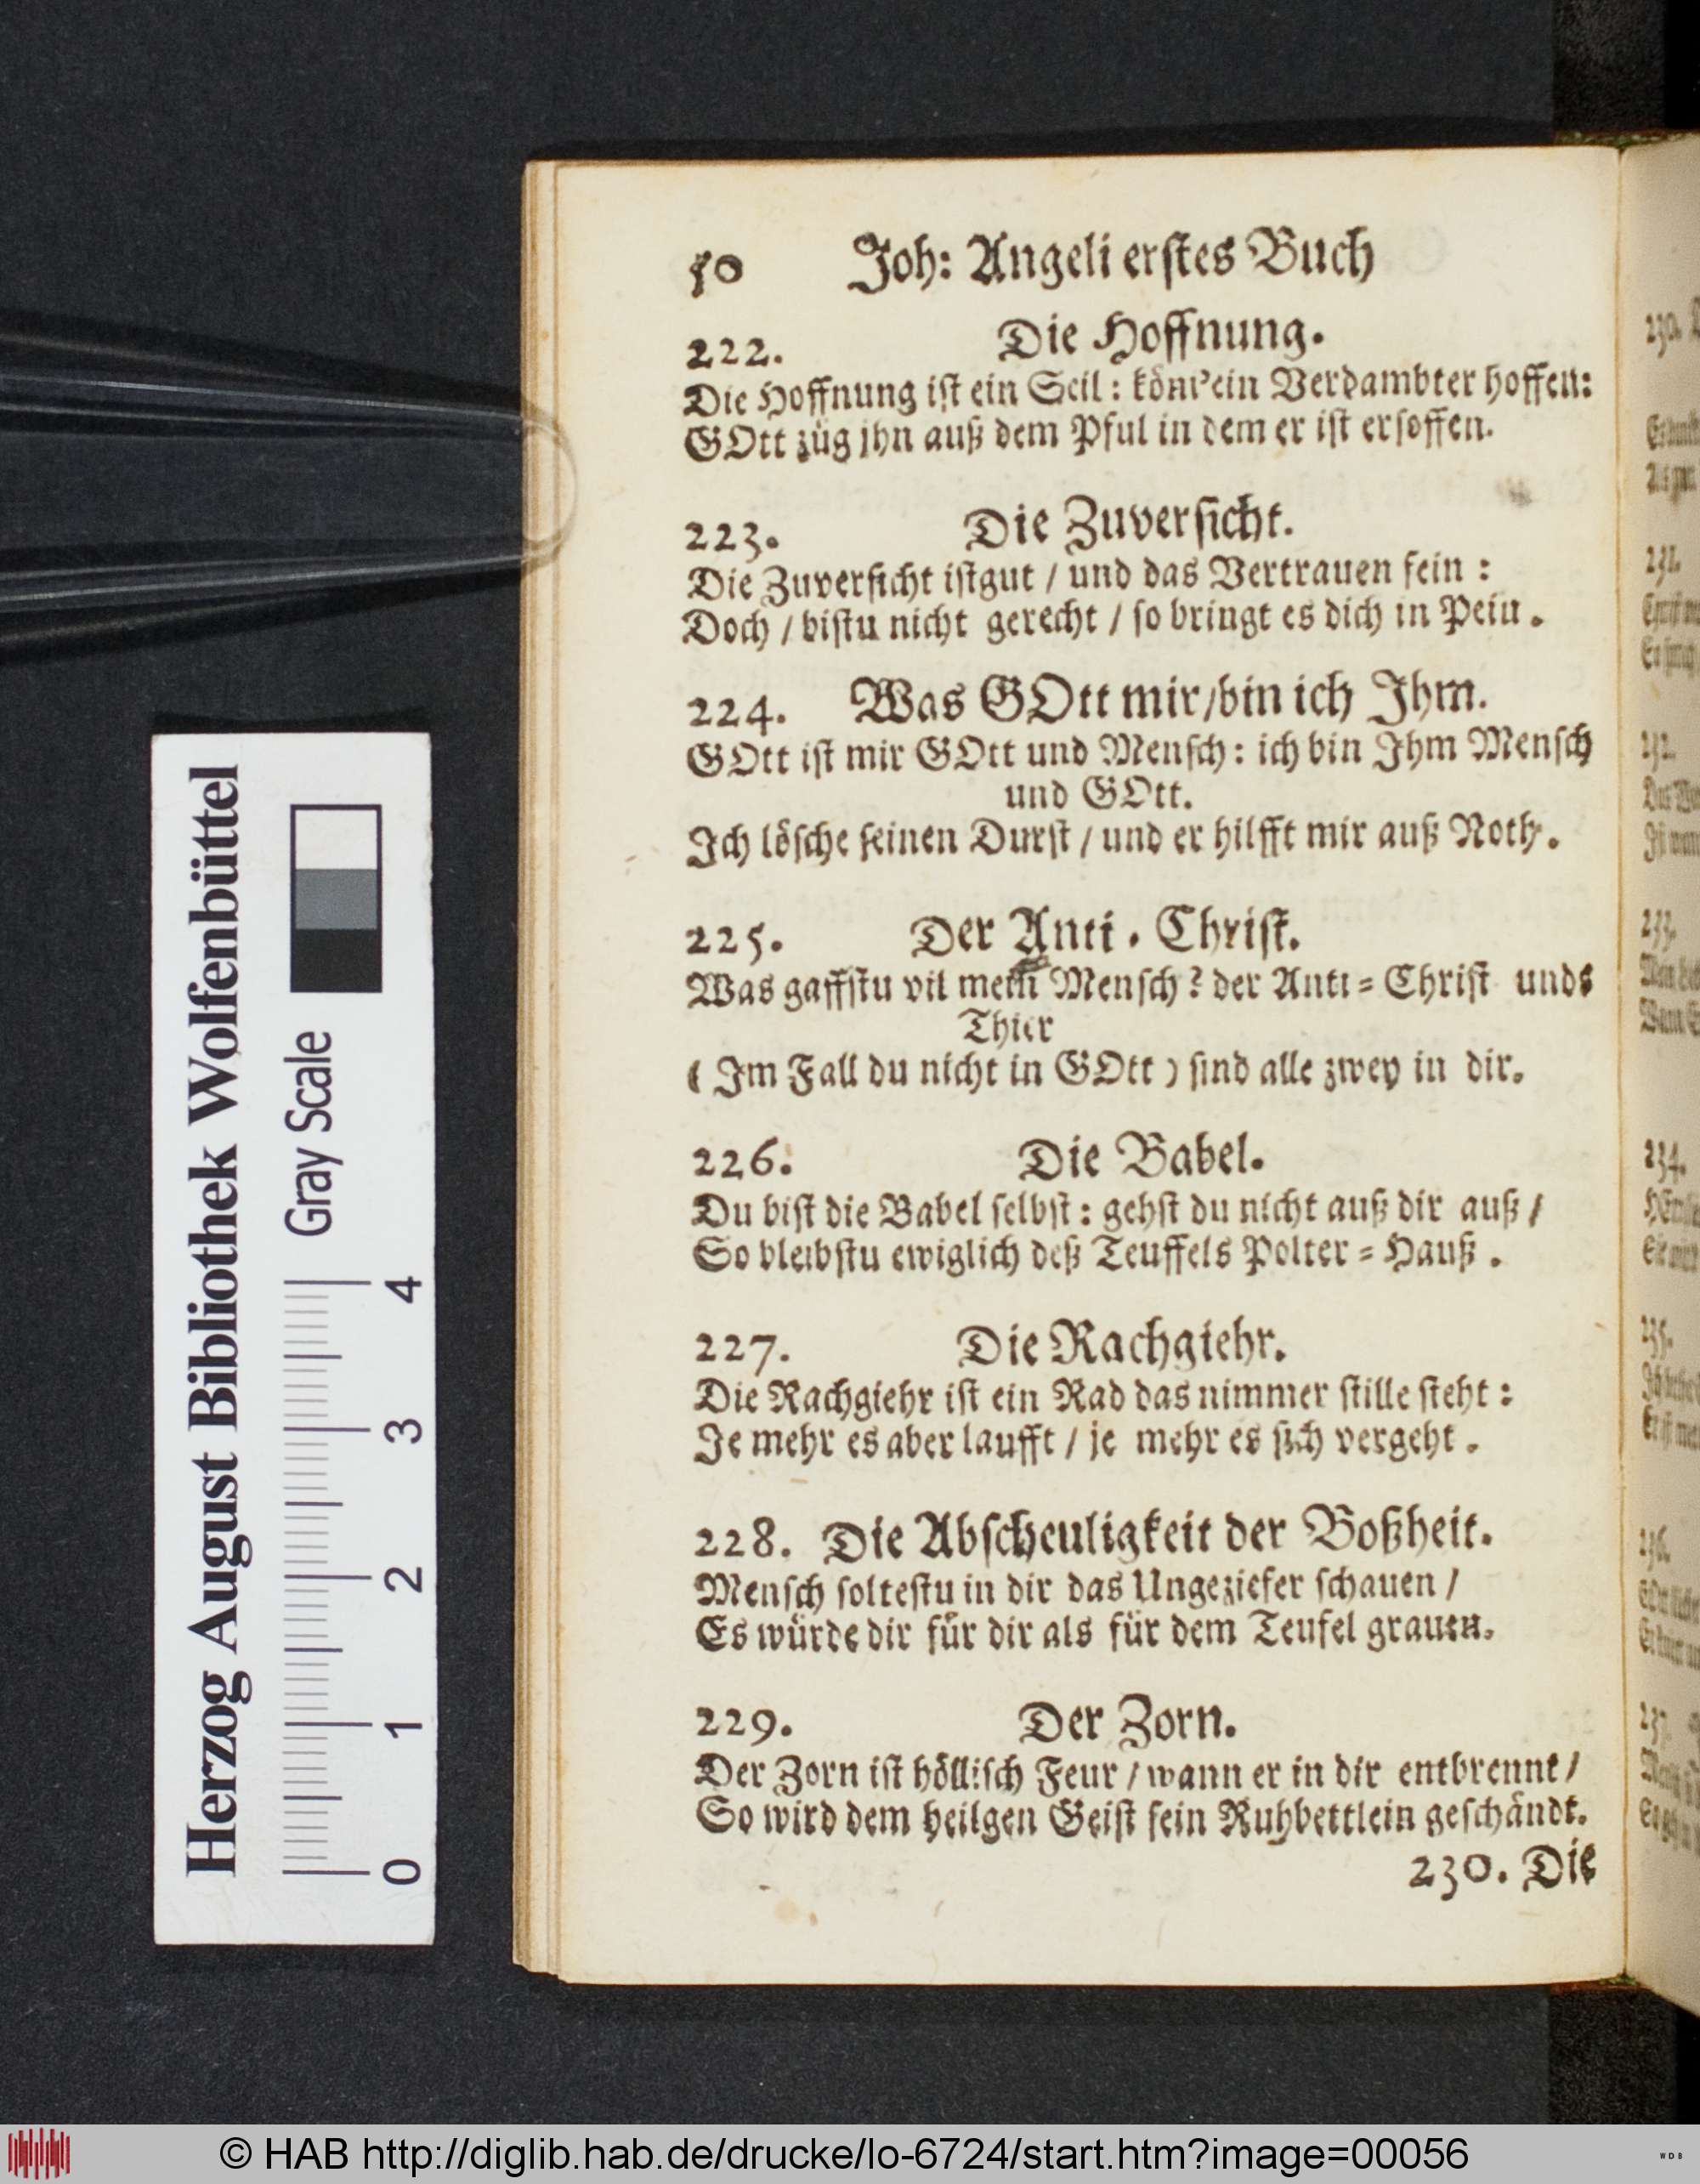 50 Joh: Angeli erstes Buch
222. Die Hoffnung.
Die Hoffnung ist ein Seil: könt' ein Verdambter hoffen:
GOtt züg jhn auß dem Pful in dem er ist ersoffen.
223. Die Zuversicht.
Die Zuversicht ist gut / und das Vertrauen fein :
Doch / bistu nicht gerecht / so bringt es dich in Pein.
224. Was GOtt mir/bin ich Ihm.
GOtt ist mir GOtt und Mensch: ich bin Ihm Mensch
und GOtt.
Ich lösche seinen Durst / und er hilfft mir auß Noth.
225. Der Anti-Christ.
Was gaffstu vil mein Mensch? der Anti=Christ unds
Thier
(Im Fall du nicht in GOtt) sind alle zwey in dir.
226. Die Babel.
Du bist die Babel selbst: gehst du nicht auß dir auß /
So bleibstu ewiglich deß Teuffels Polter=Hauß.
227. Die Rachgiehr.
Die Rachgiehr ist ein Rad das nimmer stille steht:
Je mehr es aber laufft / je mehr es sich vergeht.
228. Die Abscheuligkeit der Boßheit.
Mensch soltestu in dir das Ungeziefer schauen /
Es würde dir für dir als für dem Teufel grauen.
229. Der Zorn.
Der Zorn ist höllisch Feur / wann er in dir entbrennt /
So wird dem heilgen Geist sein Ruhbettlein geschändt.
230. Die
Herzog August Bibliothek Wolfenbüttel
Gray Scale
0 1 2 3 4
© HAB http://diglib.hab.de/drucke/lo-6724/start.htm?image=00056